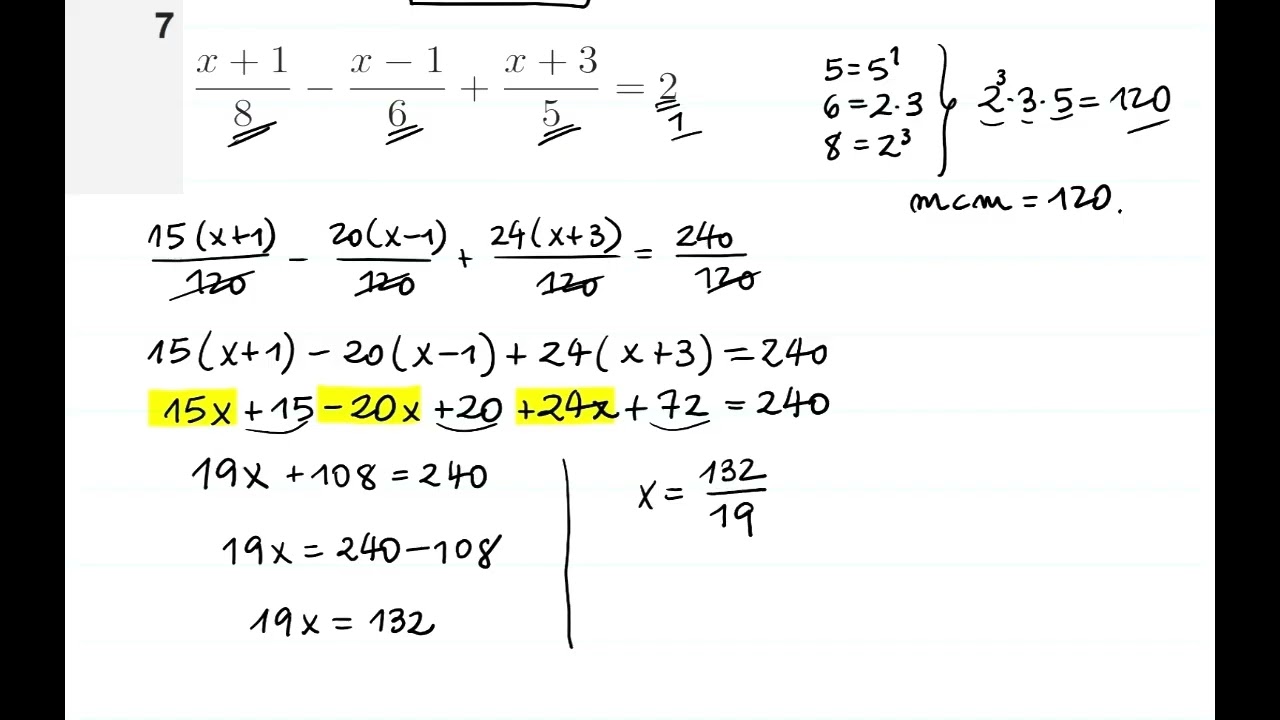 7
(x + 1)/8 − (x − 1)/6 + (x + 3)/5 = 2/1
5 = 5¹
6 = 2·3
8 = 2³
2³·3·5 = 120
mcm = 120.
15(x+1)/120 − 20(x−1)/120 + 24(x+3)/120 = 240/120
15(x+1) − 20(x−1) + 24(x+3) = 240
15x + 15 − 20x + 20 + 24x + 72 = 240
19x + 108 = 240
19x = 240 − 108
19x = 132
x = 132/19